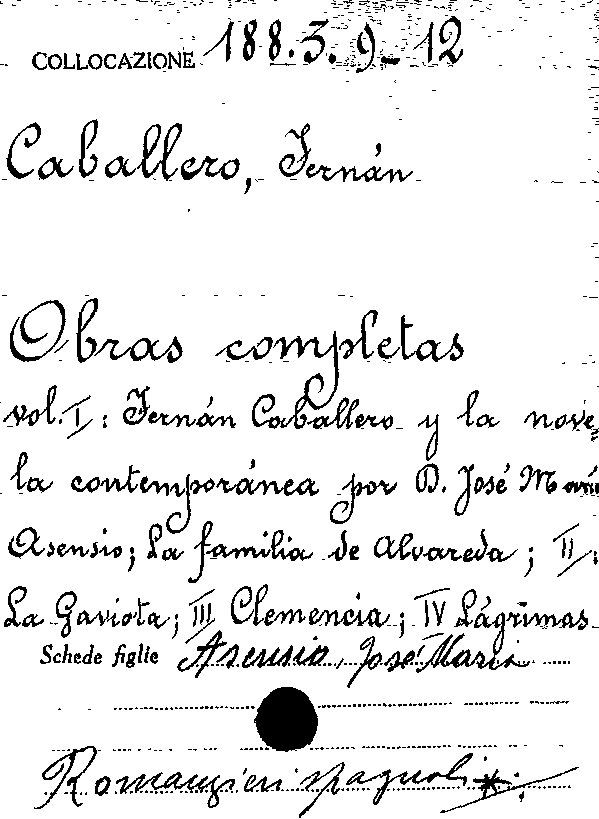 COLLOCAZIONE 188.3.9-12
Caballero, Fernán
Obras completas
vol. I: Fernán Caballero y la nove-
la contemporánea por D. José María
Asensio; La familia de Alvareda; II:
La Gaviota; III Clemencia; IV Lágrimas
Schede figlie Asensio, José María
Romanzieri spagnoli